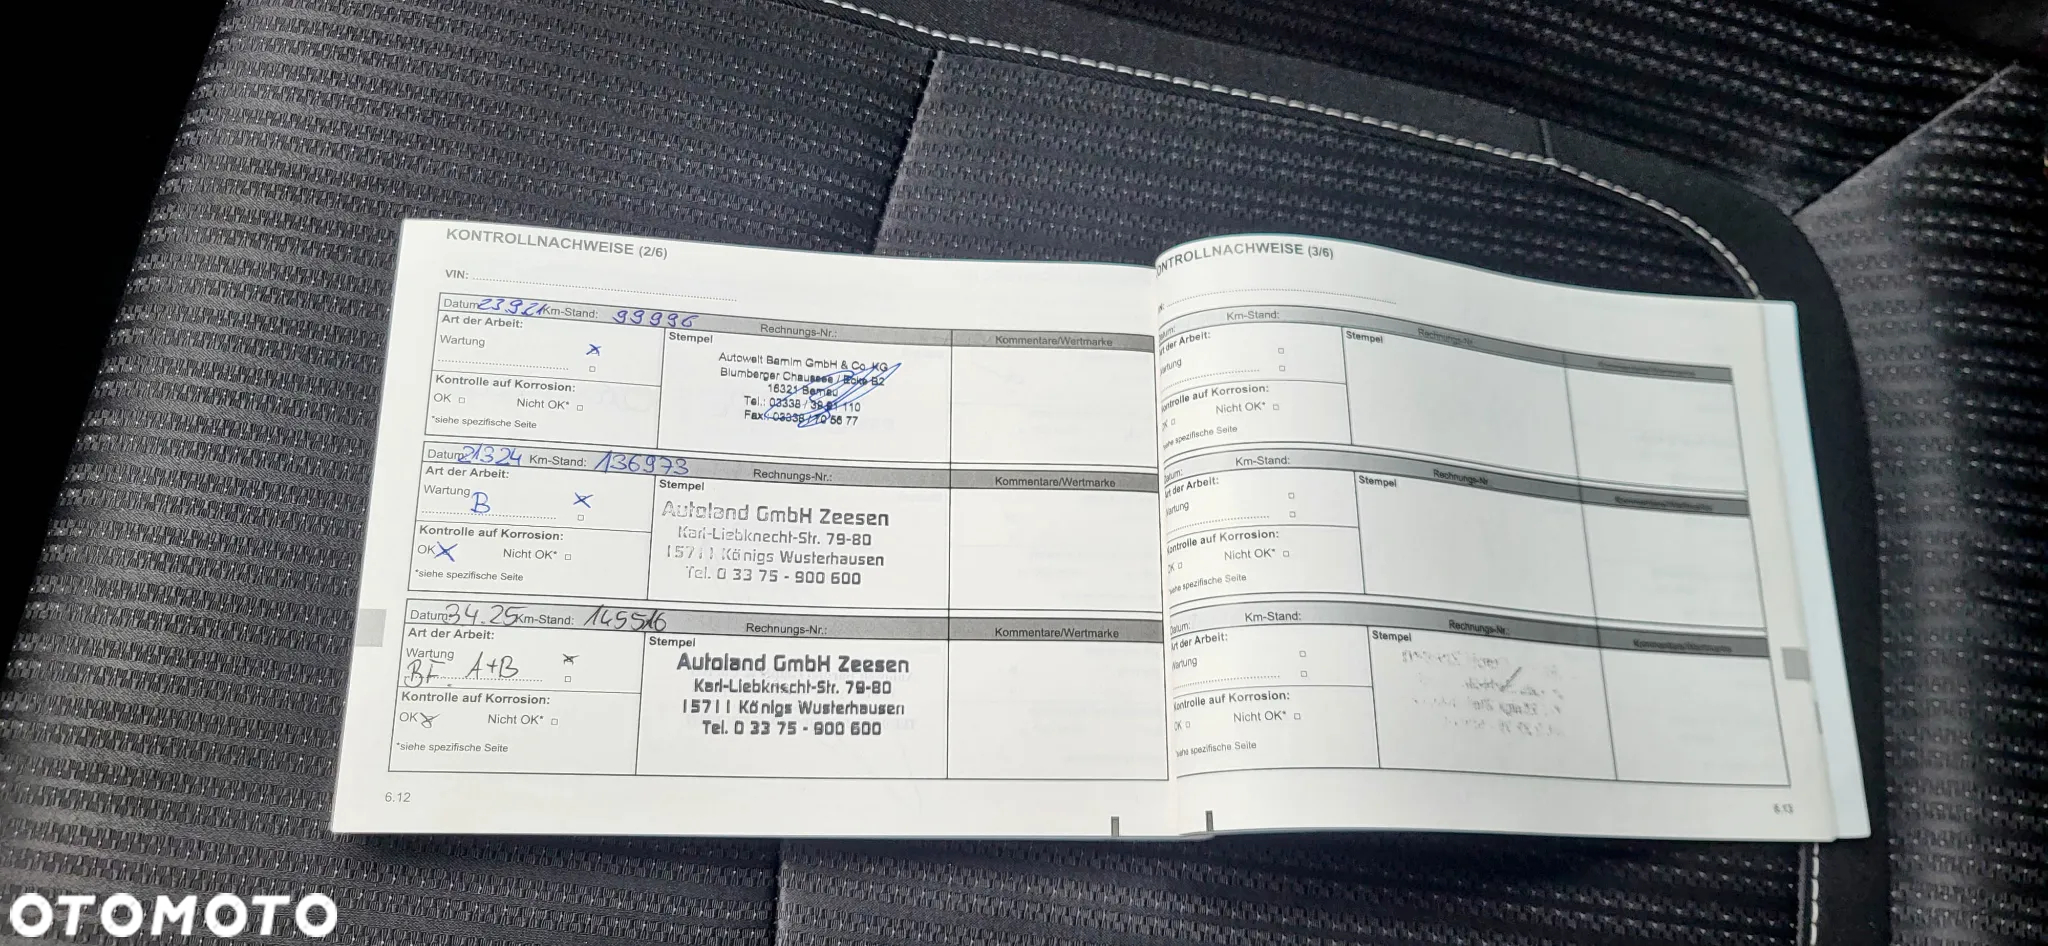 KONTROLLNACHWEISE (2/6)
VIN:
Datum: 23.9.21 Km-Stand: 99996 Rechnungs-Nr.: Kommentare/Wertmarke
Art der Arbeit:
Wartung X
Kontrolle auf Korrosion:
OK Nicht OK*
*siehe spezifische Seite
Stempel
Autowelt Barnim GmbH & Co. KG
Blumberger Chaussee / Ecke B2
16321 Bernau
Tel.: 03338 / 39 81 110
Fax: 03338 / 70 56 77
Datum: 21324 Km-Stand: 136973 Rechnungs-Nr.: Kommentare/Wertmarke
Art der Arbeit:
Wartung X
B
Kontrolle auf Korrosion:
OK X Nicht OK*
*siehe spezifische Seite
Stempel
Autoland GmbH Zeesen
Karl-Liebknecht-Str. 79-80
15711 Königs Wusterhausen
Tel. 0 33 75 - 900 600
Datum: 34.25 Km-Stand: 145516 Rechnungs-Nr.: Kommentare/Wertmarke
Art der Arbeit:
Wartung X
BF. A+B
Kontrolle auf Korrosion:
OK X Nicht OK*
*siehe spezifische Seite
Stempel
Autoland GmbH Zeesen
Karl-Liebknecht-Str. 79-80
15711 Königs Wusterhausen
Tel. 0 33 75 - 900 600
6.12
ONTROLLNACHWEISE (3/6)
Datum: Km-Stand: Rechnungs-Nr. Kommentare/Wertmarke
Art der Arbeit:
Wartung
Kontrolle auf Korrosion:
OK Nicht OK*
*siehe spezifische Seite
Stempel
Datum: Km-Stand: Rechnungs-Nr. Kommentare/Wertmarke
Art der Arbeit:
Wartung
Kontrolle auf Korrosion:
OK Nicht OK*
*siehe spezifische Seite
Stempel
Datum: Km-Stand: Rechnungs-Nr.: Kommentare/Wertmarke
Art der Arbeit:
Wartung
Kontrolle auf Korrosion:
OK Nicht OK*
*siehe spezifische Seite
Stempel
6.13
OTOMOTO